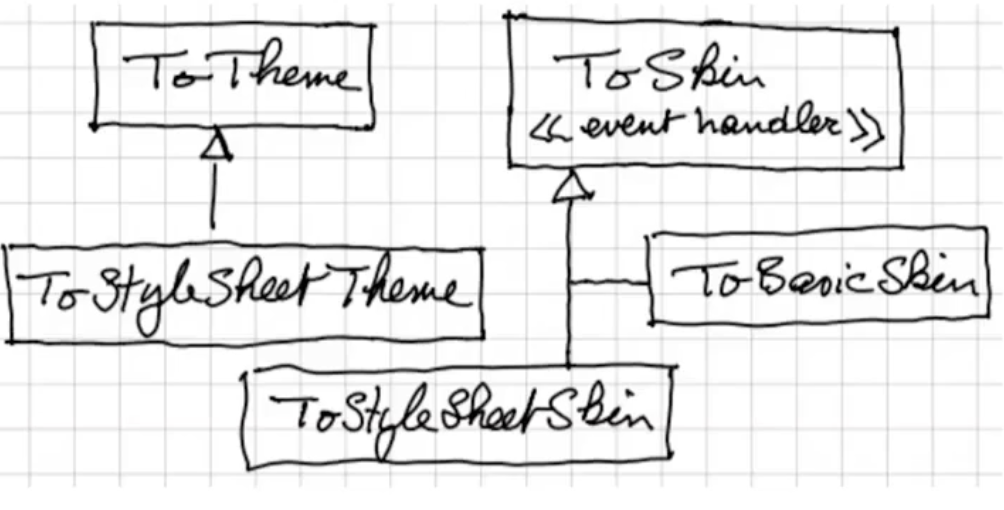 ToTheme
ToSkin
<< event handler >>
ToStyleSheetTheme
ToBasicSkin
ToStyleSheetSkin